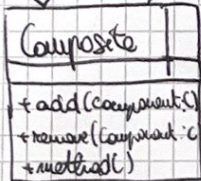 Composite
+add(component:C)
+remove(component:C
+method()